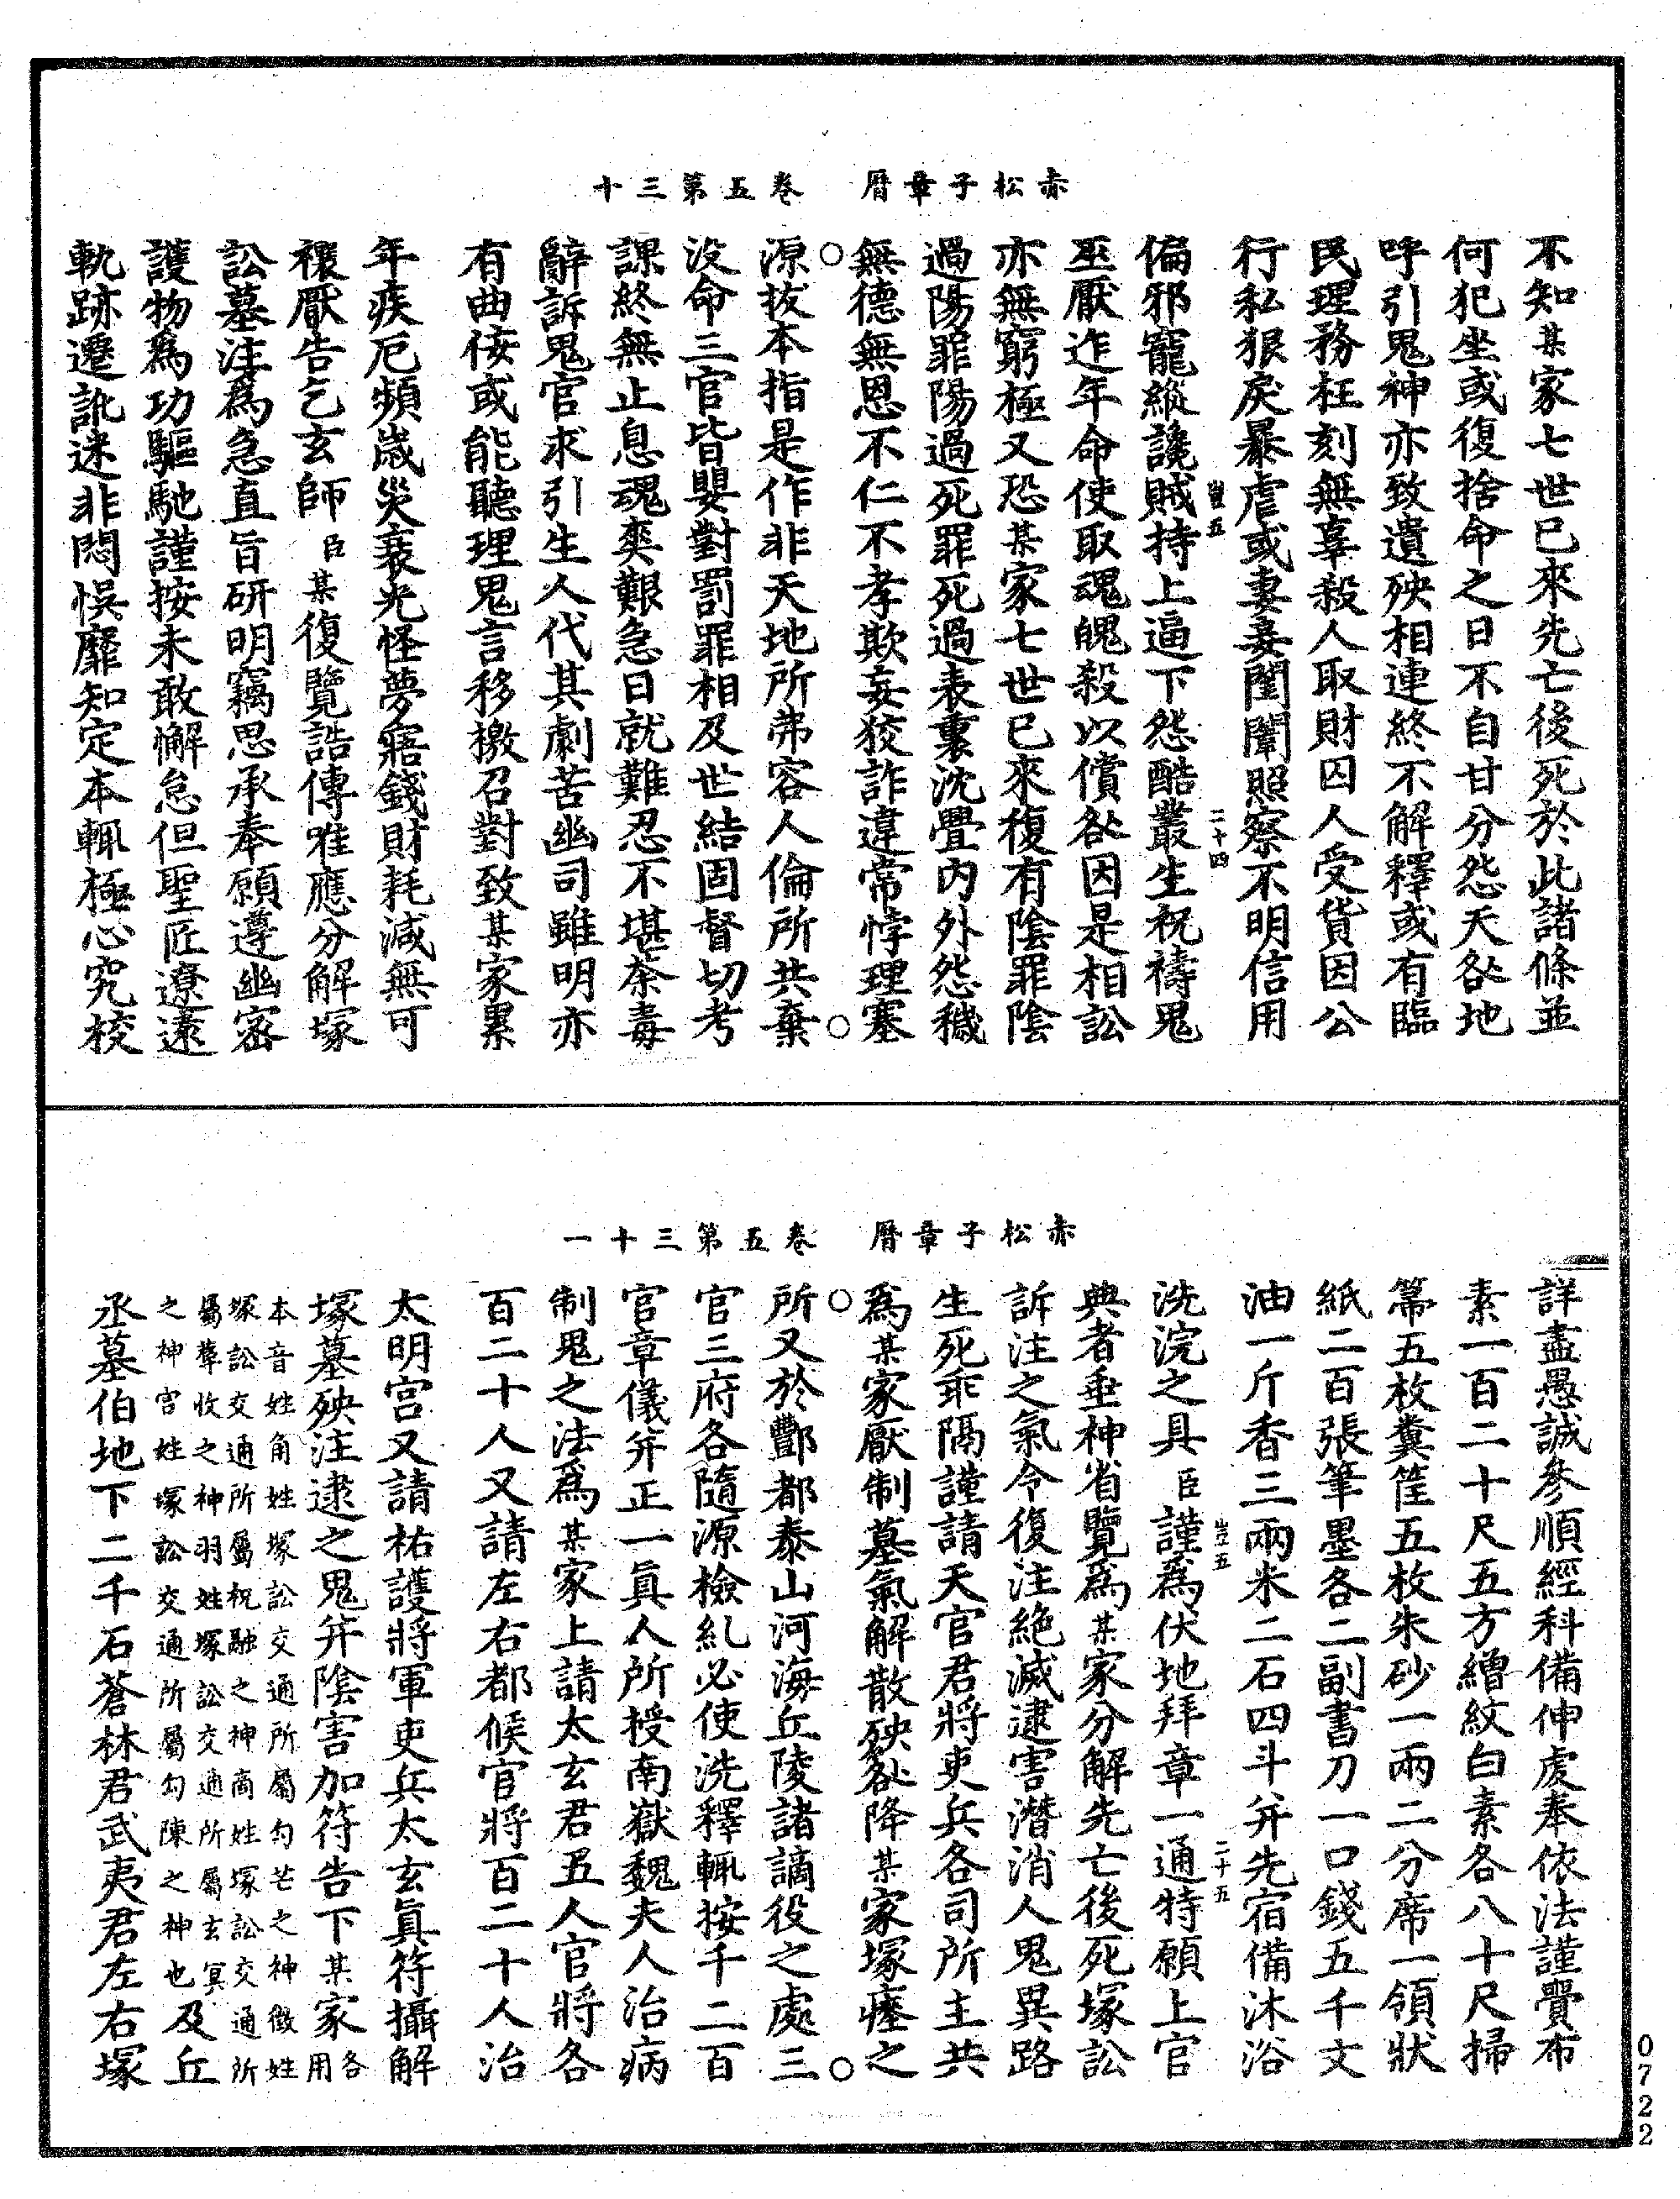 赤松子章曆　卷五第三十
不知某家七世已來先亡後死於此諸條並
何犯坐或復捨命之日不自甘分怨天咎地
呼引鬼神亦致遺殃相連終不解釋或有臨
民理務枉刻無辜殺人取財囚人受貨因公
行私狠戾暴虐或妻妾闈闡照察不明信用
豈五　二十四
偏邪寵縱讒賊持上逼下怨酷叢生祝禱鬼
巫厭迮年命使取魂魄殺以償咎因是相訟
亦無窮極又恐某家七世已來復有陰罪陰
過陽罪陽過死罪死過表裏沈疊內外怨穢
無德無恩不仁不孝欺妄狡詐違常悖理塞
源拔本指是作非天地所弗容人倫所共棄
沒命三官皆嬰對罰罪相及世結固督切考
課終無止息魂爽艱急日就難忍不堪荼毒
辭訴鬼官求引生人代其劇苦幽司雖明亦
有曲侫或能聽理鬼言移檄召對致某家累
年疾厄頻歲災衰光怪夢寤錢財耗減無可
禳厭告乞玄師臣某復覽誥傳唯應分解塚
訟墓注爲急直旨研明竊思承奉願遵幽密
護物爲功驅馳謹按未敢懈怠但聖匠遼遠
軌跡遷訛迷非悶悞靡知定本輒極心究校
赤松子章曆　卷五第三十一
詳盡愚誠參順經科備伸虔奉依法謹賷布
素一百二十尺五方繒紋白素各八十尺掃
箒五枚糞筐五枚朱砂一兩二分席一領狀
紙二百張筆墨各二副書刀一口錢五千文
油一斤香三兩米二石四斗并先宿備沐浴
豈五　二十五
洗浣之具臣謹爲伏地拜章一通特願上官
典者垂神省覽爲某家分解先亡後死塚訟
訴注之氣令復注絕滅逮害潛消人鬼異路
生死乖隔謹請天官君將吏兵各司所主共
爲某家厭制墓氣解散殃咎降某家塚瘞之
所又於酆都泰山河海丘陵諸謫役之處三
官三府各隨源檢糺必使洗釋輒按千二百
官章儀并正一眞人所授南嶽魏夫人治病
制鬼之法爲某家上請太玄君五人官將各
百二十人又請左右都候官將百二十人治
太明宮又請祐護將軍吏兵太玄眞符攝解
塚墓殃注逮之鬼并陰害加符告下某家各用
本音姓角姓塚訟交通所屬勾芒之神徵姓
塚訟交通所屬祝融之神商姓塚訟交通所
屬蓐收之神羽姓塚訟交通所屬玄冥
之神宮姓塚訟交通所屬勾陳之神也及丘
丞墓伯地下二千石蒼林君武夷君左右塚
0722